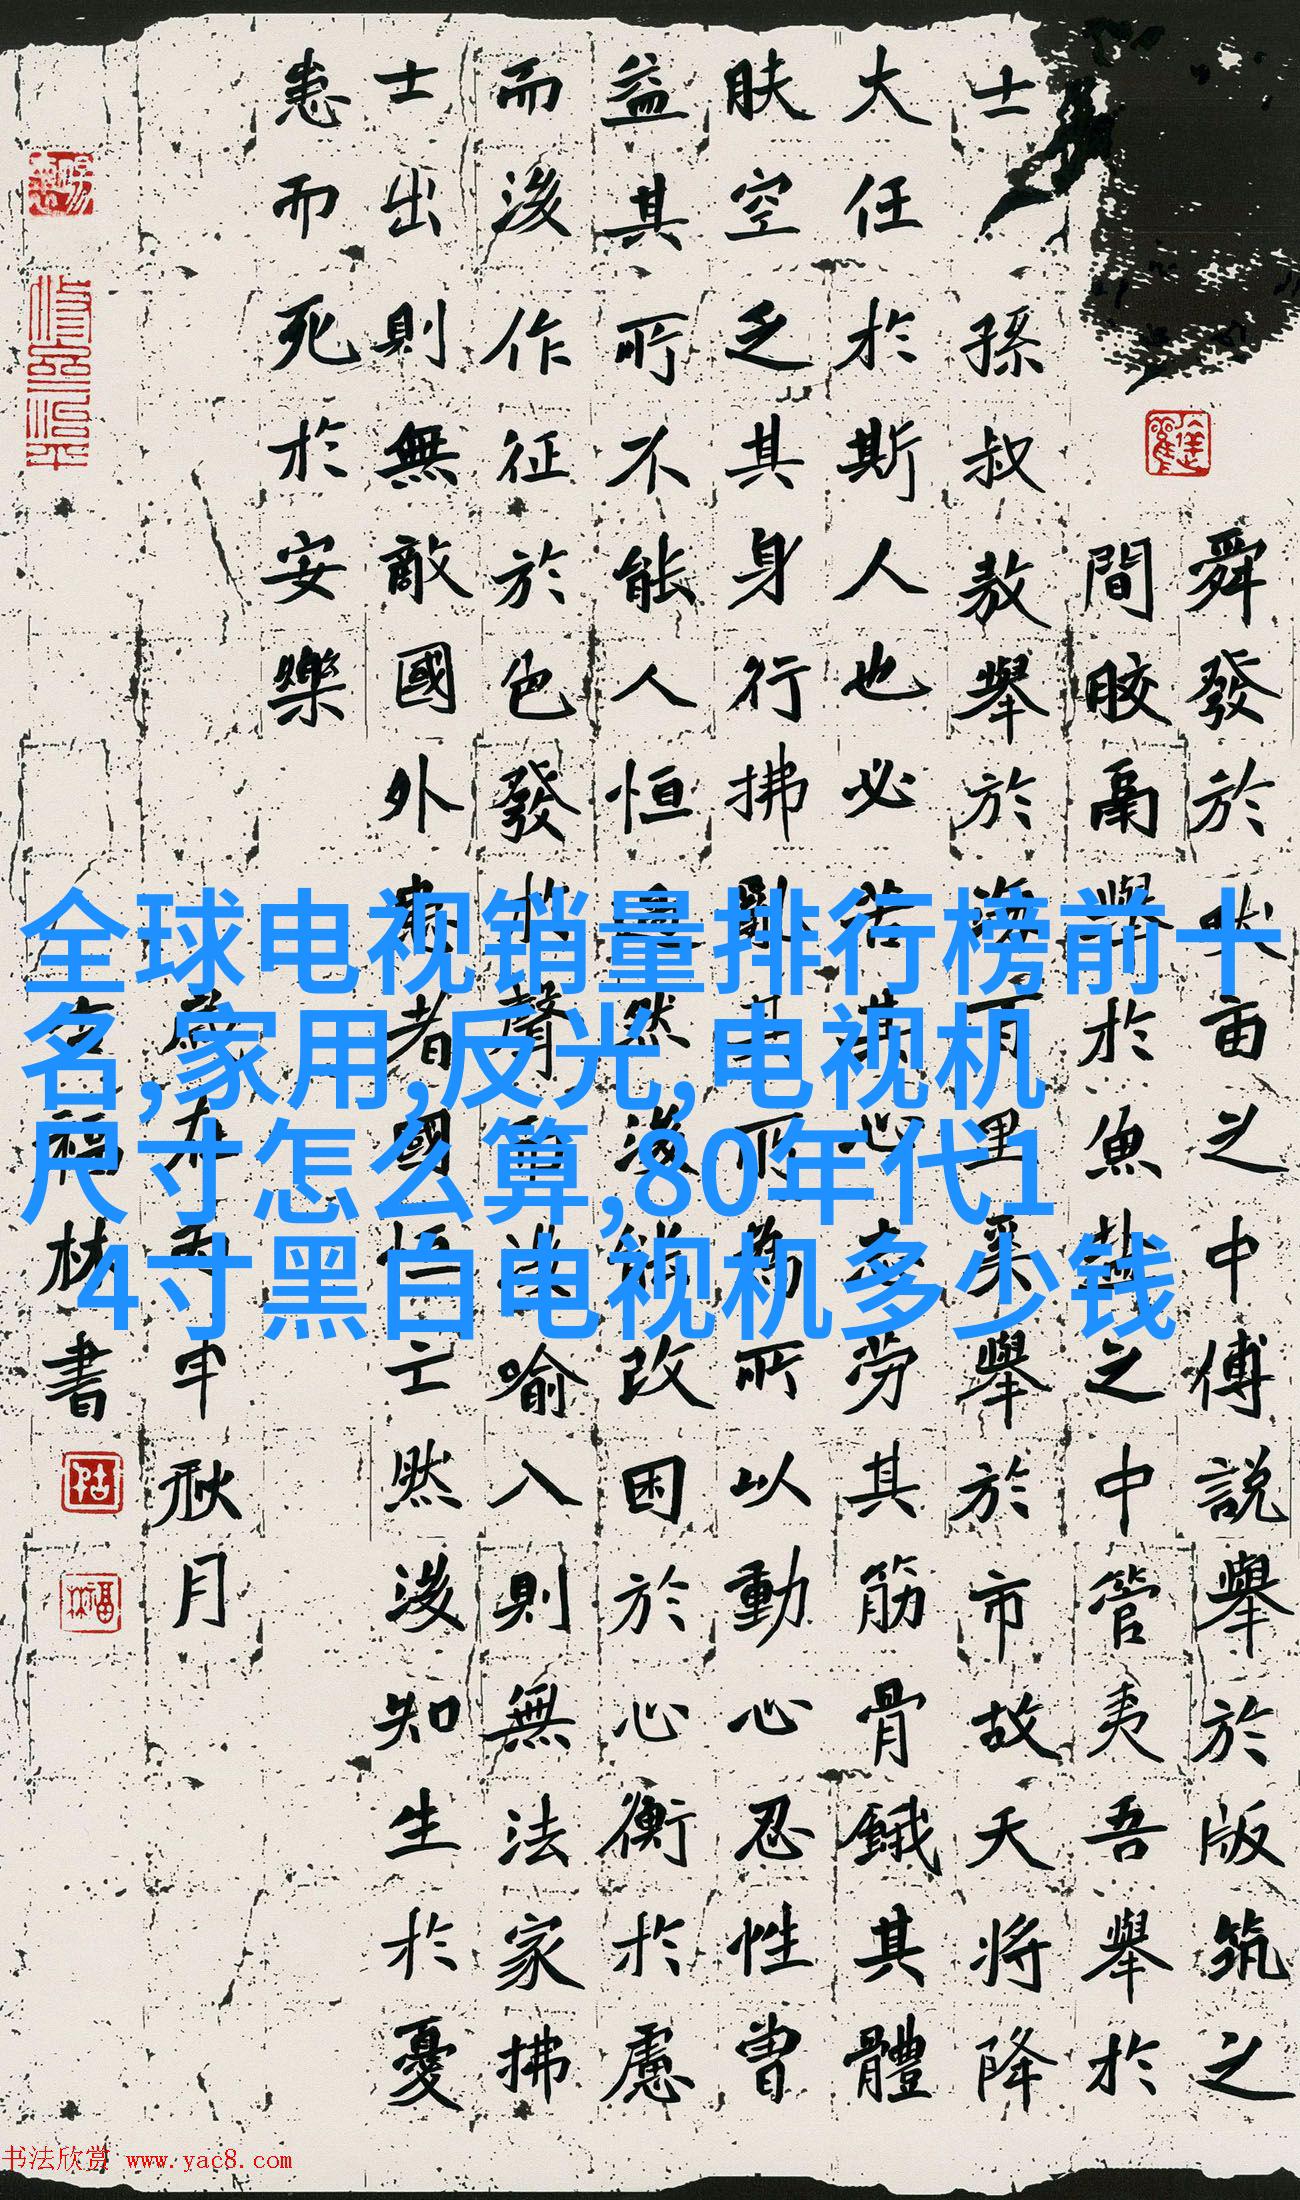 舜發於畎亩之中傅說舉於版筑之
間膠鬲舉於魚鹽之中管夷吾舉於
士孫叔敖舉於海百里奚舉於市故天將降
大任於斯人也必苦其心志劳其筋骨餓其體
肤空乏其身行拂亂其所為所以動心忍性曾
益其所不能人恒過然後能改困於心衡於慮
而後作征於色發於聲而後喻入則無法家拂
士出則無敵國外患者國恒亡然後知生於憂
患而死於安樂
歲在丙申秋月
福林書
全球电视销量排行榜前十
名,家用,反光,电视机
尺寸怎么算,80年代1
4寸黑白电视机多少钱
书法欣赏 www.yac8.com